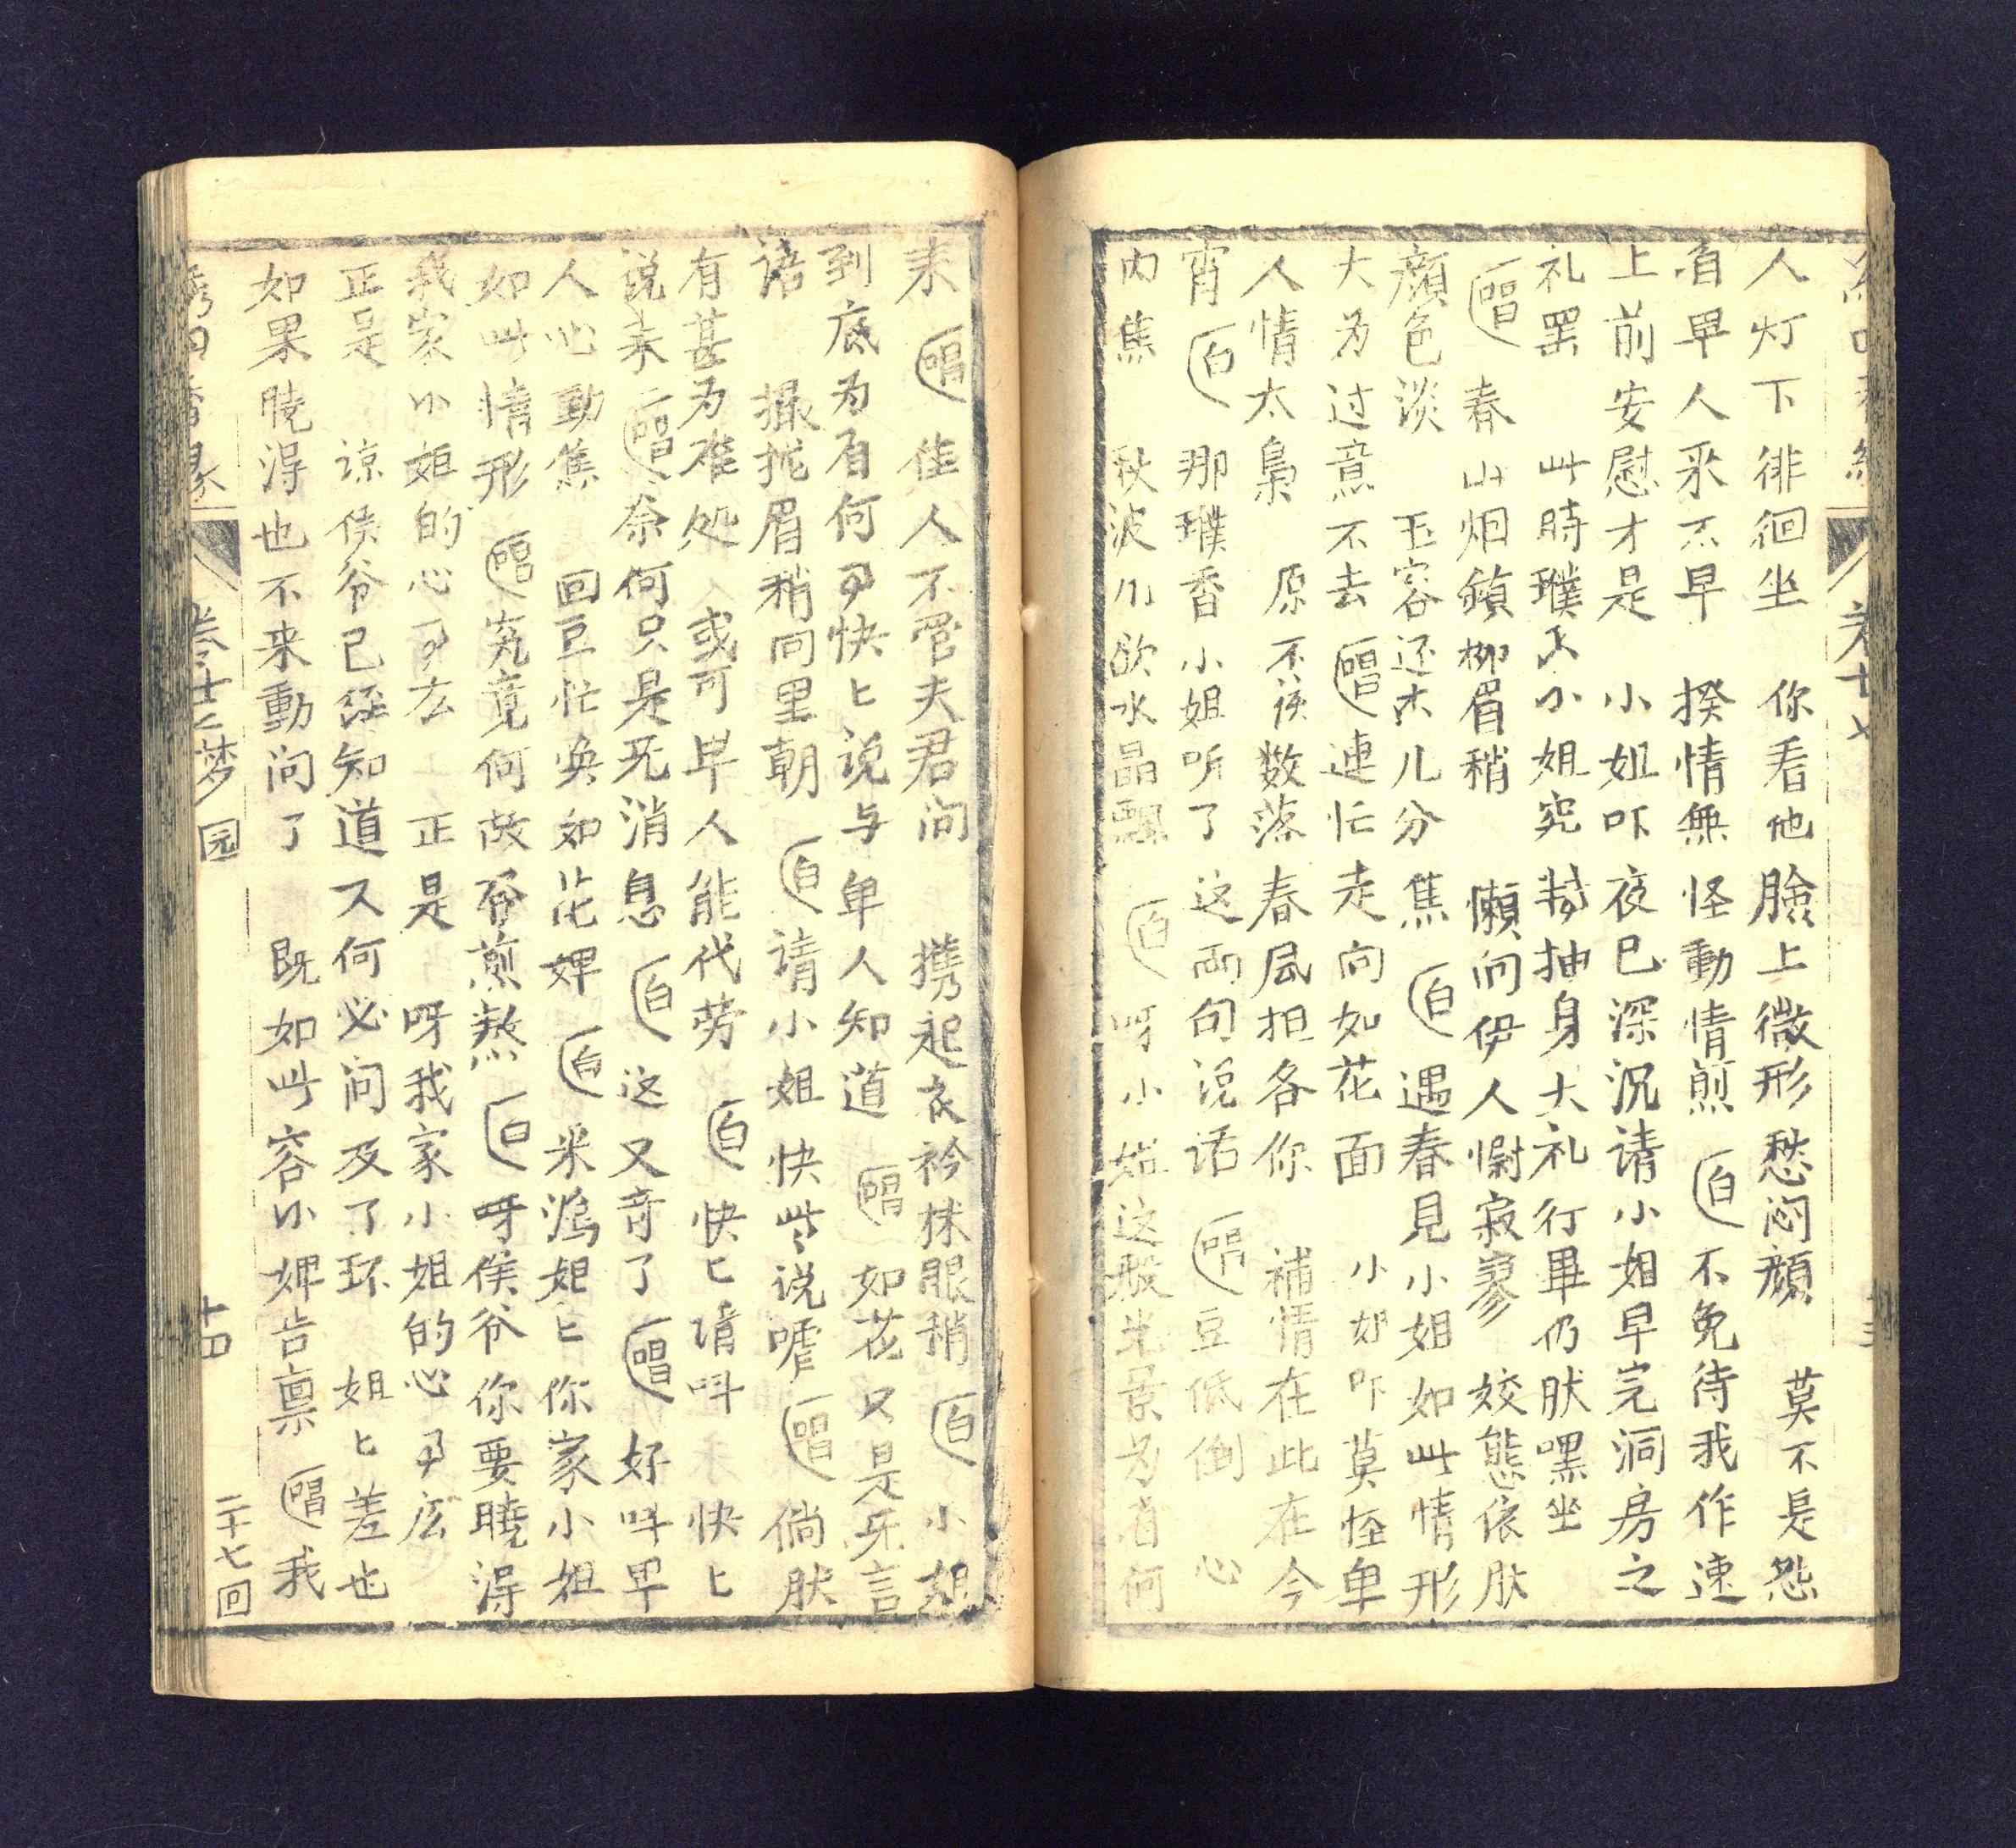 人灯下徘徊坐 你看他臉上微形愁悶顔 莫不是怨
自早人来不早 揆情無怪動情煎 白 不免待我作速
上前安慰才是 小姐吓夜已深沉请小姐早完洞房之
礼罢 此時璞小姐究 抽身大礼行畢仍肰嘿坐
唱 春山烟鎖柳眉稍 懶问伊人慰寂寥 姣態依肰
顔色淡 玉容还杰儿分焦 白 遇春見小姐如此情形
大为过意不去 唱 連忙走向如花面 小姐吓莫怪卑
人情太梟 原不俟数落春風担各你 補情在此在今
宵 白 那璞香小姐听了这両句说话 唱 豆低倒心
内焦 秋波几欲水晶飄 白 呀小姐这般光景为着何
来 唱 佳人不管夫君问 携起衣衿抹眼稍 白 小姐
到底为着何事快匕说与卑人知道 唱 如花只是无言
语 撮拢眉稍向里朝 白 请小姐快些说嘘 唱 倘肰
有甚为难処 或可卑人能代劳 白 快匕請呌 快匕
说来 唱 奈何只是死消息 白 这又竒了 唱 好呌卑
人心動焦 回豆忙唤如花婢 白 米鴻姐匕你家小姐
如此情形 唱 究竟何故着煎熬 白 呀侯爷你要曉得
我家小姐的心事庅 正是 呀我家小姐的心事庅
正是 谅侯爷已经知道又何必问及了环 姐匕差也
如果曉得也不来動问了 既如此容小婢告禀 唱 我
卷十七 梦 园 十四 二十七回